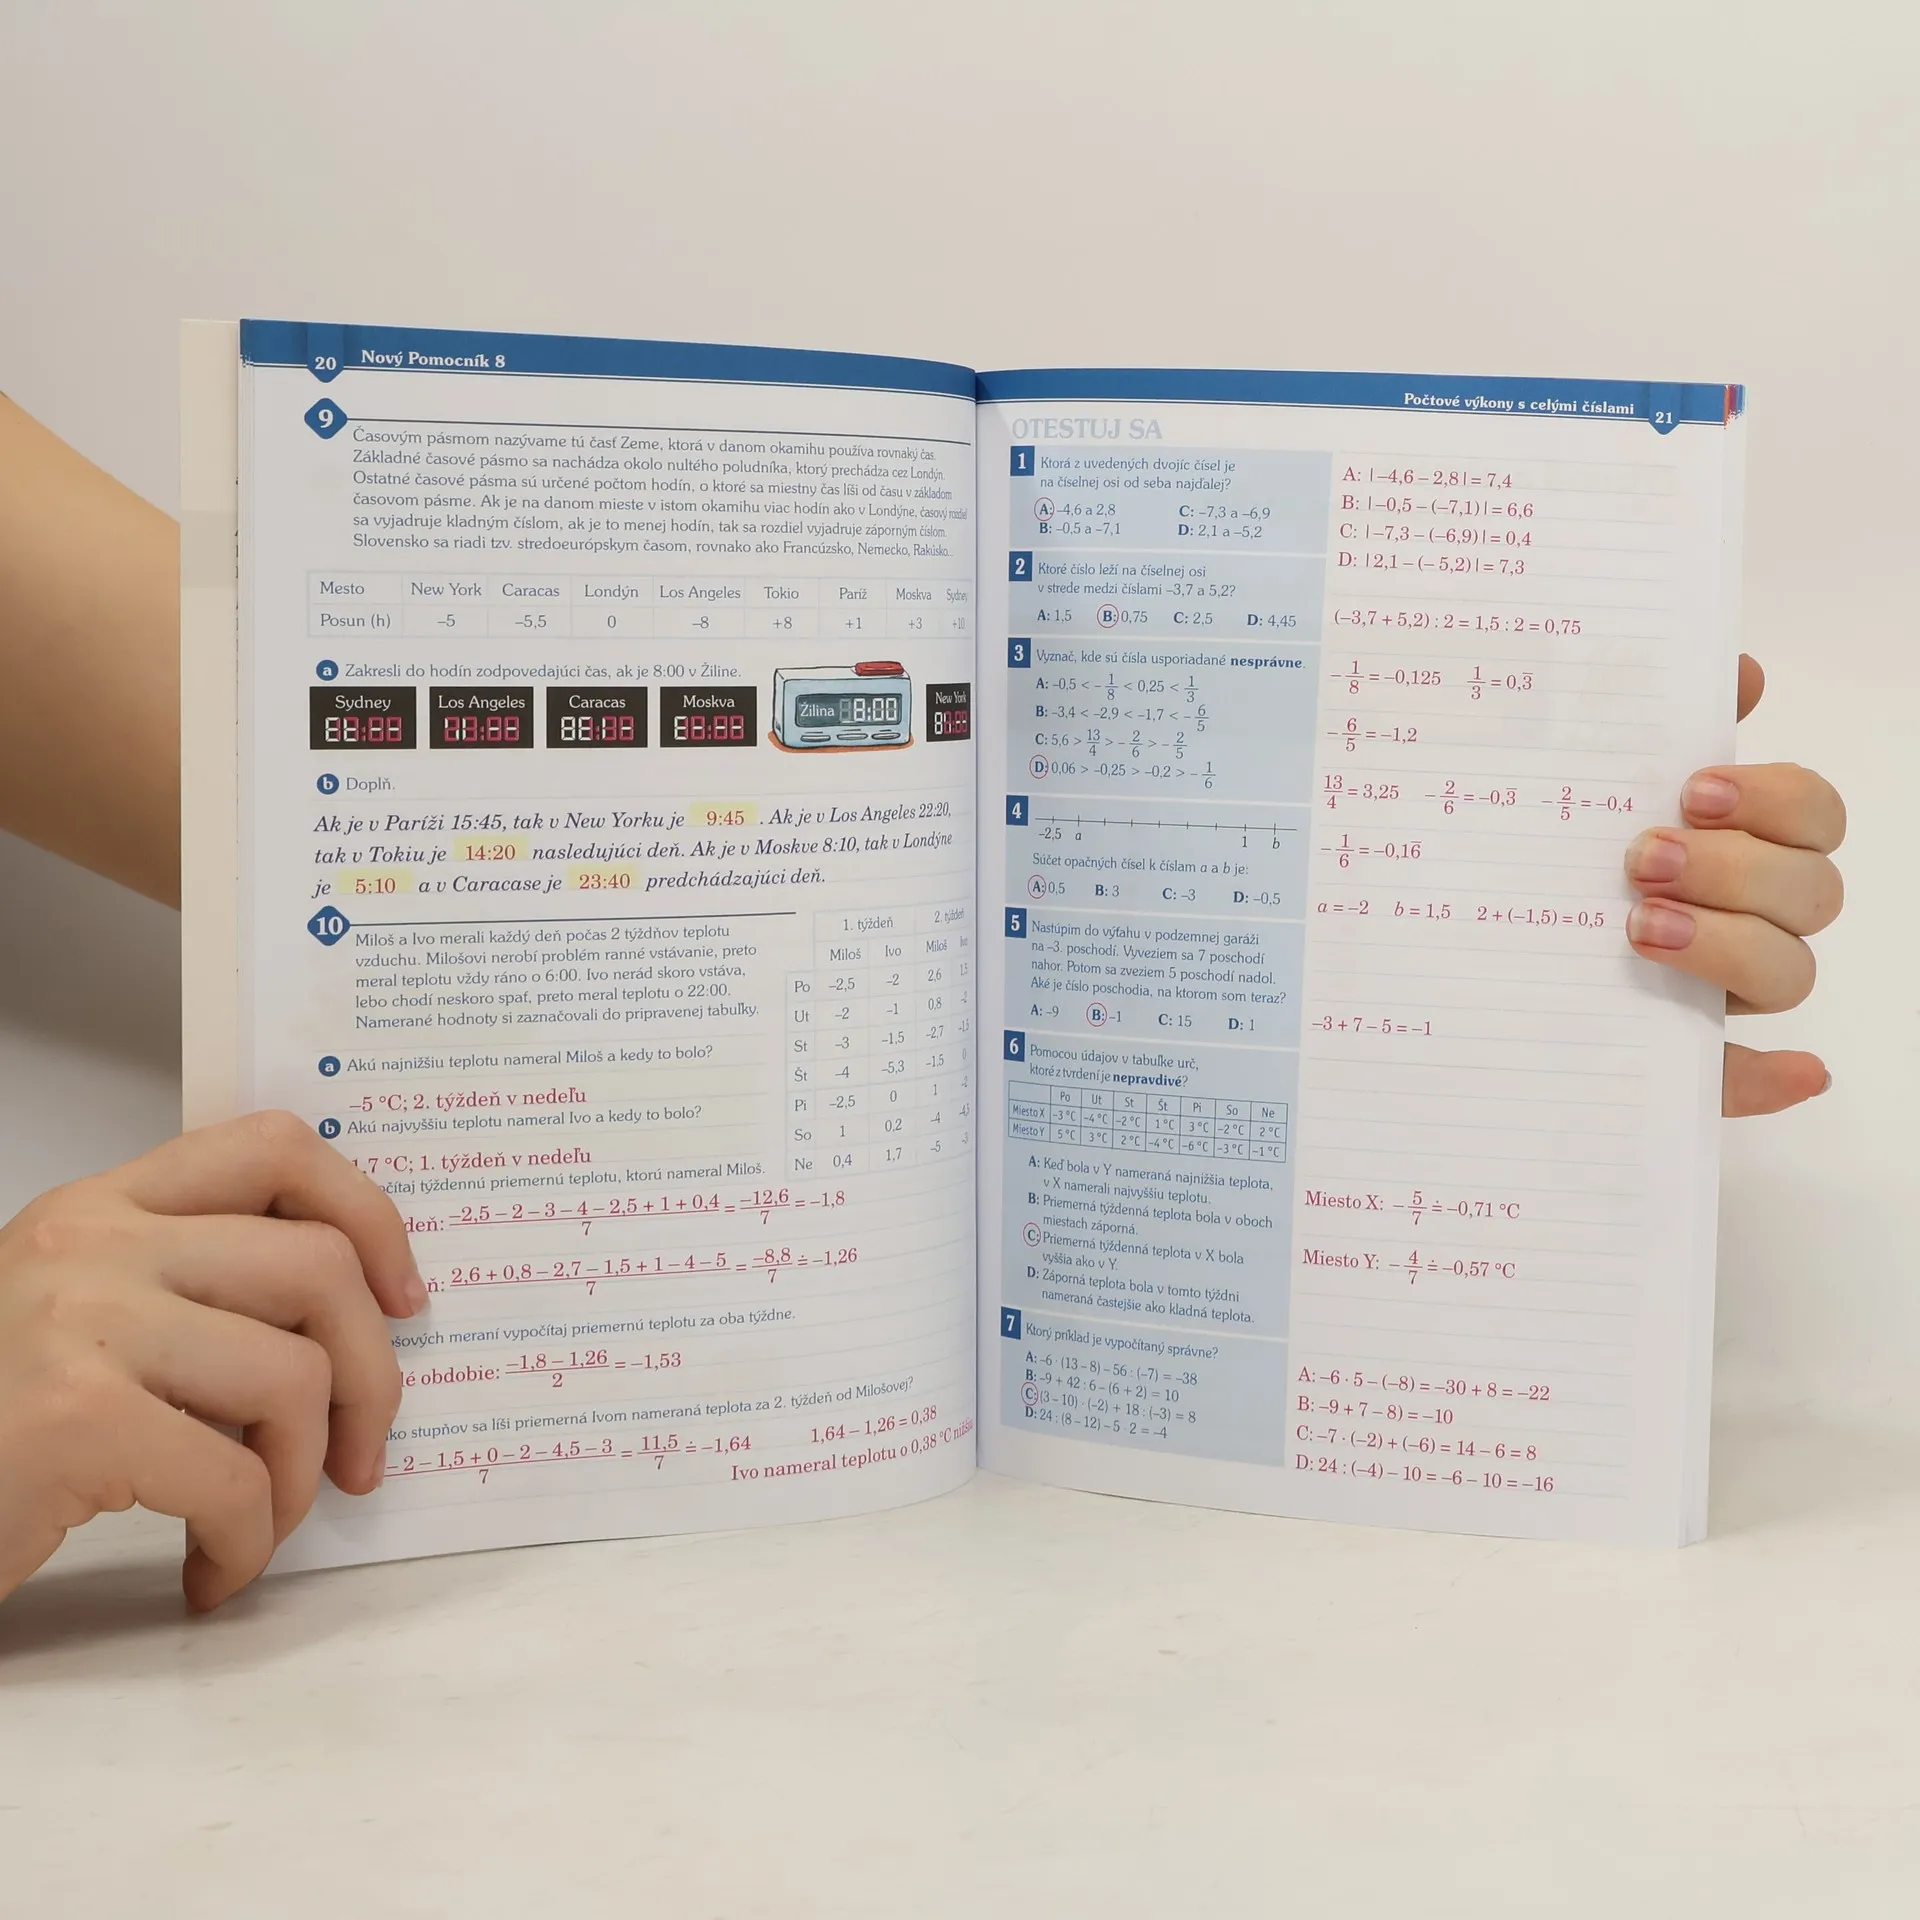 20 Nový Pomocník 8
9
Časovým pásmom nazývame tú časť Zeme, ktorá v danom okamihu používa rovnaký čas.
Základné časové pásmo sa nachádza okolo nultého poludníka, ktorý prechádza cez Londýn.
Ostatné časové pásma sú určené počtom hodín, o ktoré sa miestny čas líši od času v základom
časovom pásme. Ak je na danom mieste v istom okamihu viac hodín ako v Londýne, časový rozdiel
sa vyjadruje kladným číslom, ak je to menej hodín, tak sa rozdiel vyjadruje záporným číslom.
Slovensko sa riadi tzv. stredoeurópskym časom, rovnako ako Francúzsko, Nemecko, Rakúsko...
Mesto New York Caracas Londýn Los Angeles Tokio Paríž Moskva Sydney
Posun (h) –5 –5,5 0 –8 +8 +1 +3 +10
a Zakresli do hodín zodpovedajúci čas, ak je 8:00 v Žiline.
Sydney Los Angeles Caracas Moskva Žilina 8:00 New York
b Doplň.
Ak je v Paríži 15:45, tak v New Yorku je 9:45 . Ak je v Los Angeles 22:20,
tak v Tokiu je 14:20 nasledujúci deň. Ak je v Moskve 8:10, tak v Londýne
je 5:10 a v Caracase je 23:40 predchádzajúci deň.
10
Miloš a Ivo merali každý deň počas 2 týždňov teplotu
vzduchu. Milošovi nerobí problém ranné vstávanie, preto
meral teplotu vždy ráno o 6:00. Ivo nerád skoro vstáva,
lebo chodí neskoro spať, preto meral teplotu o 22:00.
Namerané hodnoty si zaznačovali do pripravenej tabuľky.
1. týždeň 2. týždeň
Miloš Ivo Miloš Ivo
Po –2,5 –2 2,6 1,5
Ut –2 –1 0,8 –2
St –3 –1,5 –2,7 –1,5
Št –4 –5,3 –1,5 0
Pi –2,5 0 1 –2
So 1 0,2 –4 –4,5
Ne 0,4 1,7 –5 –3
a Akú najnižšiu teplotu nameral Miloš a kedy to bolo?
–5 °C; 2. týždeň v nedeľu
b Akú najvyššiu teplotu nameral Ivo a kedy to bolo?
1,7 °C; 1. týždeň v nedeľu
čítaj týždennú priemernú teplotu, ktorú nameral Miloš.
deň: –2,5 – 2 – 3 – 4 – 2,5 + 1 + 0,4 / 7 = –12,6 / 7 = –1,8
ň: 2,6 + 0,8 – 2,7 – 1,5 + 1 – 4 – 5 / 7 = –8,8 / 7 ≐ –1,26
šových meraní vypočítaj priemernú teplotu za oba týždne.
lé obdobie: –1,8 – 1,26 / 2 = –1,53
ko stupňov sa líši priemerná Ivom nameraná teplota za 2. týždeň od Milošovej?
– 2 – 1,5 + 0 – 2 – 4,5 – 3 / 7 = 11,5 / 7 ≐ –1,64 1,64 – 1,26 = 0,38
Ivo nameral teplotu o 0,38 °C nižšiu
Počtové výkony s celými číslami 21
OTESTUJ SA
1 Ktorá z uvedených dvojíc čísel je
na číselnej osi od seba najďalej?
A: –4,6 a 2,8 C: –7,3 a –6,9
B: –0,5 a –7,1 D: 2,1 a –5,2
A: |–4,6 – 2,8| = 7,4
B: |–0,5 – (–7,1)| = 6,6
C: |–7,3 – (–6,9)| = 0,4
D: |2,1 – (– 5,2)| = 7,3
2 Ktoré číslo leží na číselnej osi
v strede medzi číslami –3,7 a 5,2?
A: 1,5 B: 0,75 C: 2,5 D: 4,45
(–3,7 + 5,2) : 2 = 1,5 : 2 = 0,75
3 Vyznač, kde sú čísla usporiadané nesprávne.
A: –0,5 < –1/8 < 0,25 < 1/3
B: –3,4 < –2,9 < –1,7 < –6/5
C: 5,6 > 13/4 > –2/6 > –2/5
D: 0,06 > –0,25 > –0,2 > –1/6
–1/8 = –0,125 1/3 = 0,3̅
–6/5 = –1,2
13/4 = 3,25 –2/6 = –0,3̅ –2/5 = –0,4
–1/6 = –0,16̅
4
–2,5 a 1 b
Súčet opačných čísel k číslam a a b je:
A: 0,5 B: 3 C: –3 D: –0,5
a = –2 b = 1,5 2 + (–1,5) = 0,5
5 Nastúpim do výťahu v podzemnej garáži
na –3. poschodí. Vyveziem sa 7 poschodí
nahor. Potom sa zveziem 5 poschodí nadol.
Aké je číslo poschodia, na ktorom som teraz?
A: –9 B: –1 C: 15 D: 1
–3 + 7 – 5 = –1
6 Pomocou údajov v tabuľke urč,
ktoré z tvrdení je nepravdivé?
Po Ut St Št Pi So Ne
Miesto X –3 °C –4 °C –2 °C 1 °C 3 °C –2 °C 2 °C
Miesto Y 5 °C 3 °C 2 °C –4 °C –6 °C –3 °C –1 °C
A: Keď bola v Y nameraná najnižšia teplota,
v X namerali najvyššiu teplotu.
B: Priemerná týždenná teplota bola v oboch
miestach záporná.
C: Priemerná týždenná teplota v X bola
vyššia ako v Y.
D: Záporná teplota bola v tomto týždni
nameraná častejšie ako kladná teplota.
Miesto X: –5/7 ≐ –0,71 °C
Miesto Y: –4/7 ≐ –0,57 °C
7 Ktorý príklad je vypočítaný správne?
A: –6 · (13 – 8) – 56 : (–7) = –38
B: –9 + 42 : 6 – (6 + 2) = 10
C: (3 – 10) · (–2) + 18 : (–3) = 8
D: 24 : (8 – 12) – 5 · 2 = –4
A: –6 · 5 – (–8) = –30 + 8 = –22
B: –9 + 7 – 8) = –10
C: –7 · (–2) + (–6) = 14 – 6 = 8
D: 24 : (–4) – 10 = –6 – 10 = –16